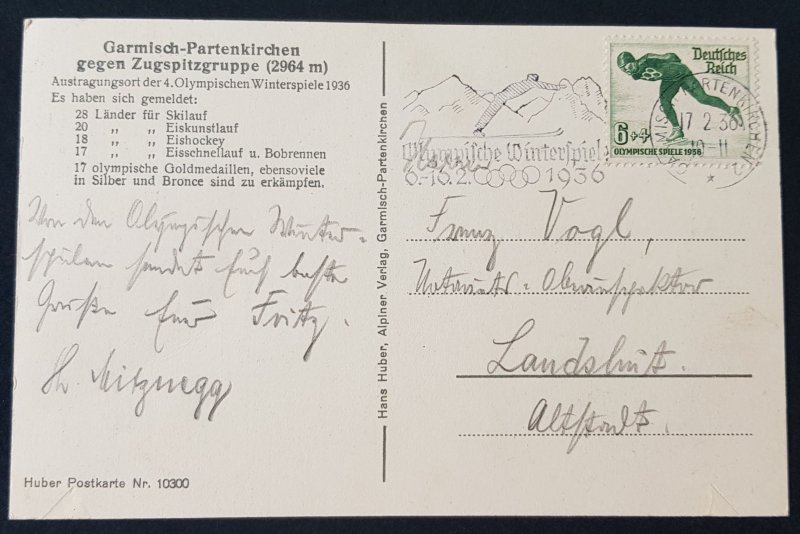 Garmisch-Partenkirchen
gegen Zugspitzgruppe (2964 m)
Austragungsort der 4. Olympischen Winterspiele 1936
Es haben sich gemeldet:
28 Länder für Skilauf
20 „ „ Eiskunstlauf
18 „ „ Eishockey
17 „ „ Eisschnellauf u. Bobrennen
17 olympische Goldmedaillen, ebensoviele
in Silber und Bronce sind zu erkämpfen.
Von den Olympischen Winter-
spielen sendet Euch beste
Grüße Euer Fritz.
Huber Postkarte Nr. 10300
Hans Huber, Alpiner Verlag, Garmisch-Partenkirchen
Olympische Winterspiele
6.-16.2. 1936
Deutsches
Reich
6+4
OLYMPISCHE SPIELE 1936
GARMISCH-PARTENKIRCHEN
17.2.36
10-11
Herrn
Franz Vogl,
Notariats-Oberinspektor
Landshut.
Altstadt.